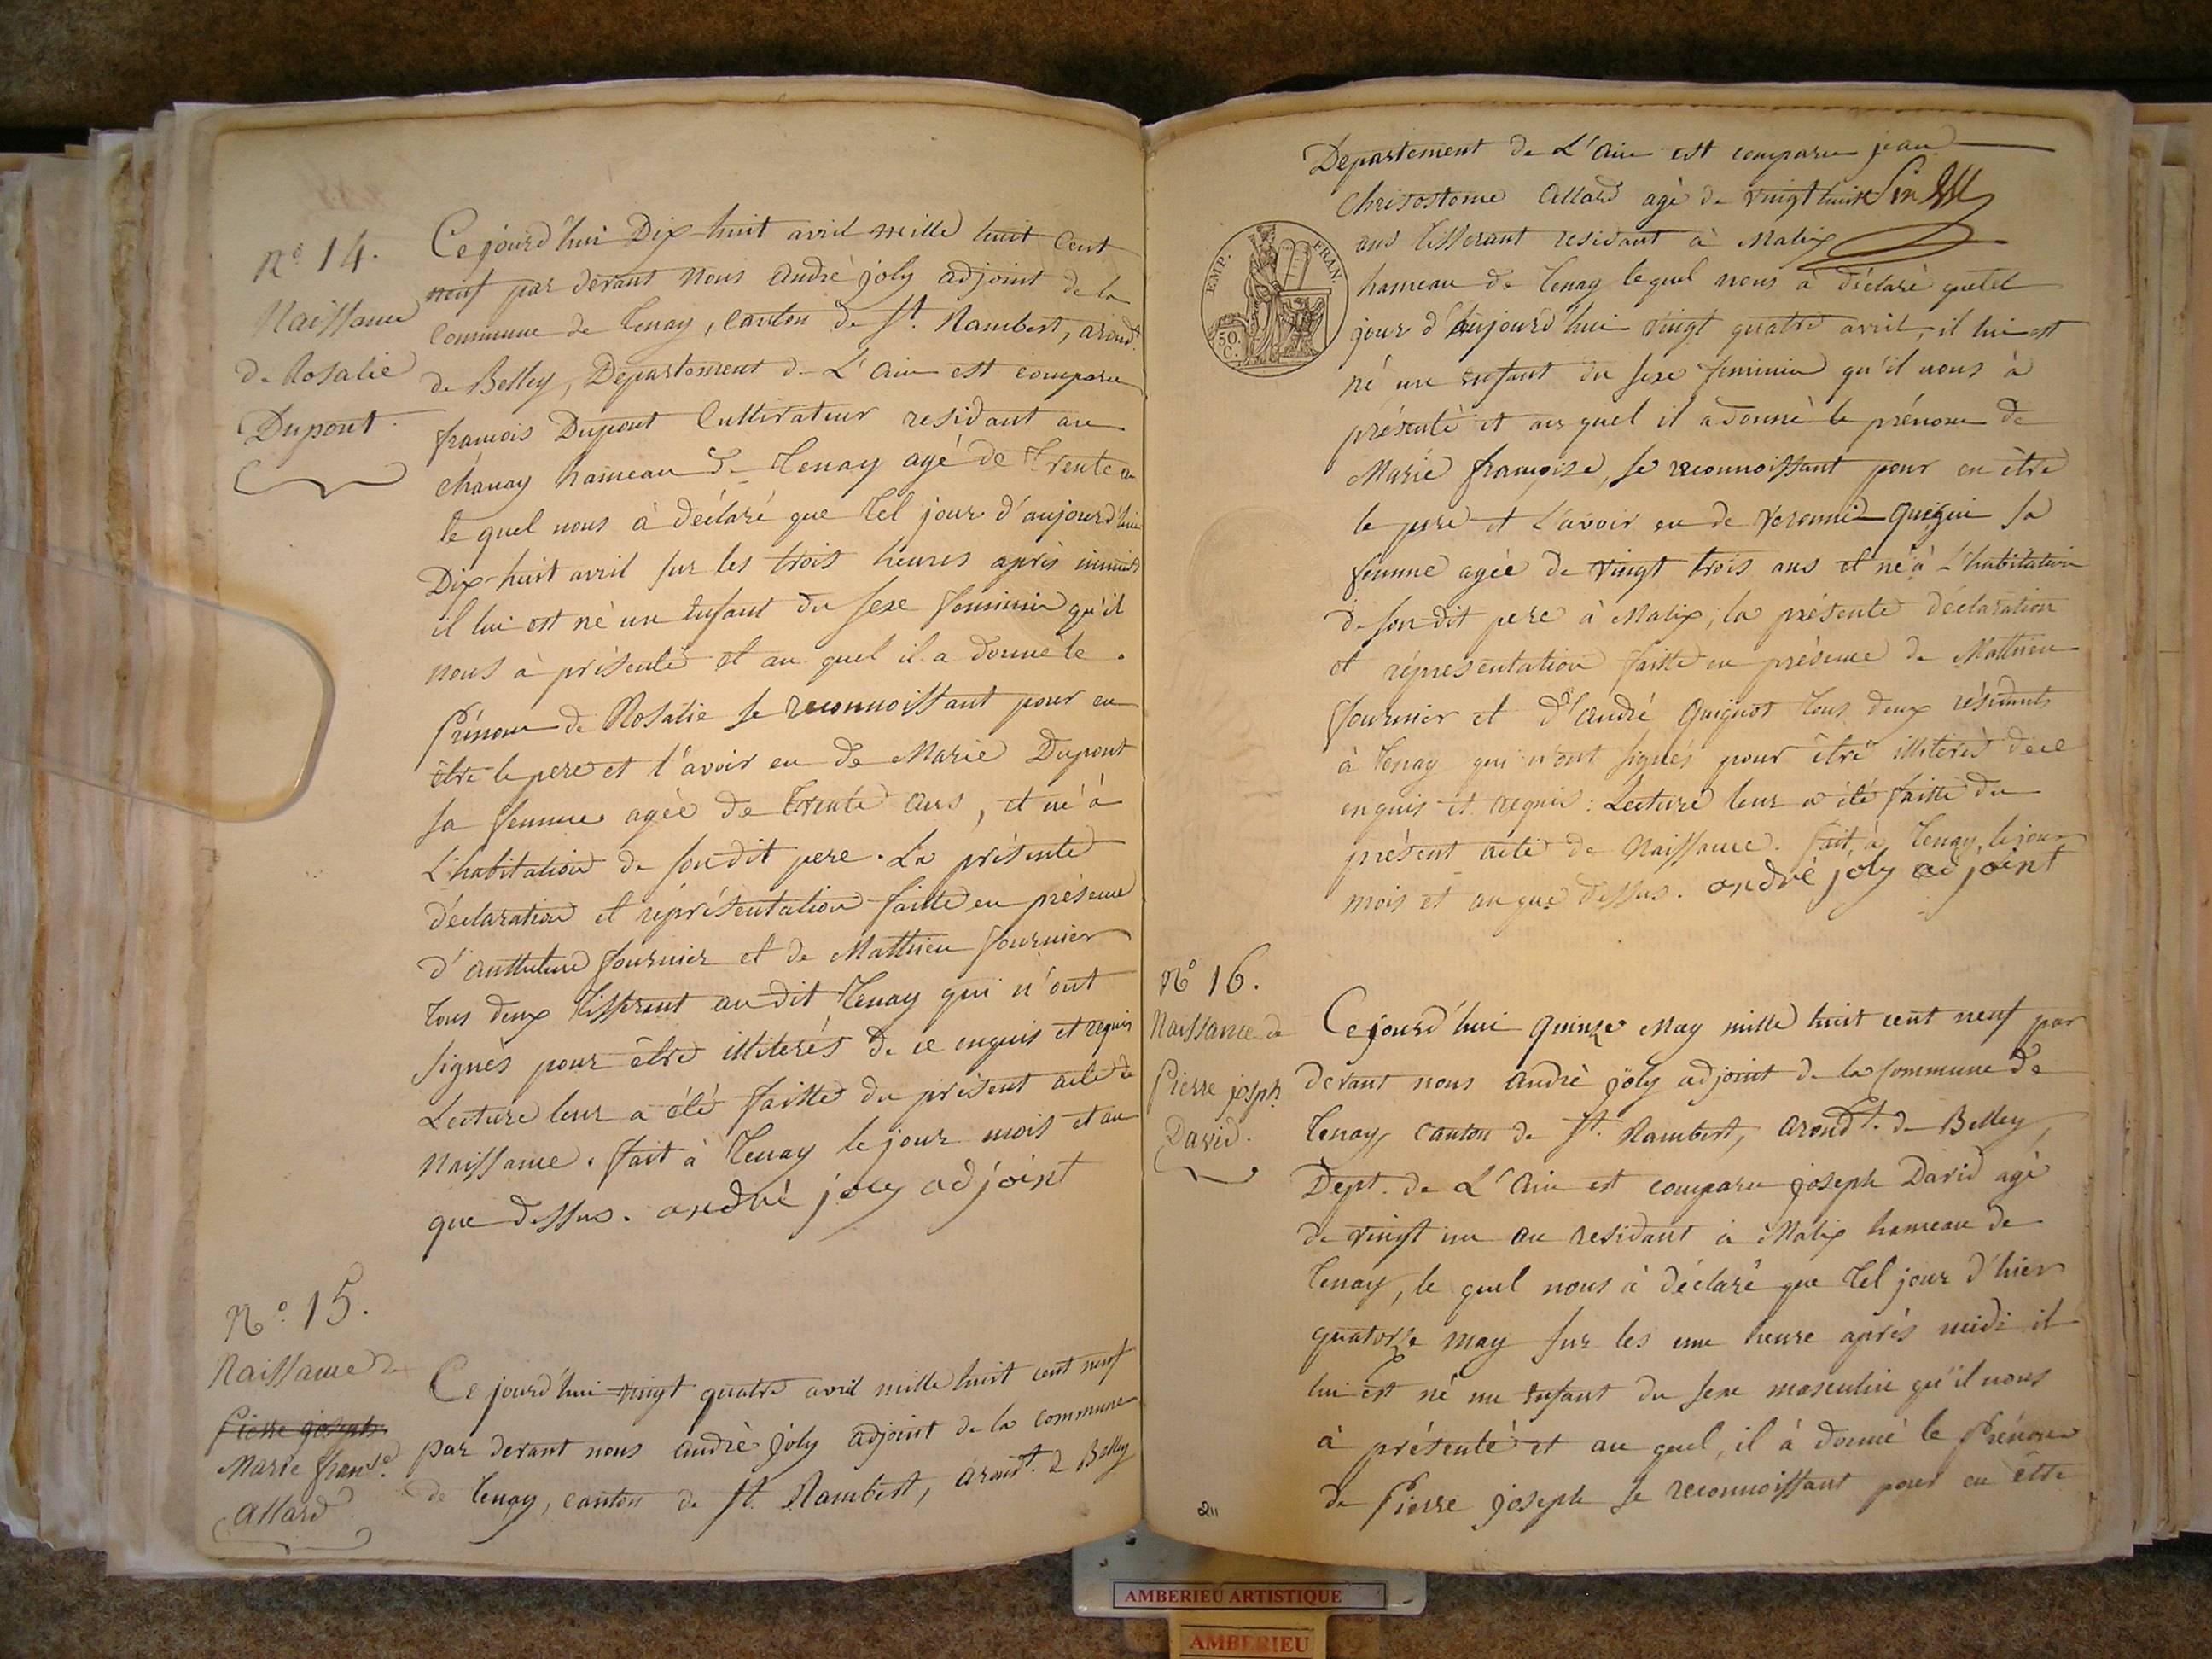 n.° 14.
Naissance
de Rosalie
Dupont.
Ce jourd'hui Dix-huit avril mille huit Cent
neuf par devant nous andré joly adjoint de la
Commune de Tenay, canton de St. Rambert, arond.t
de Belley, Département de L'ain est comparu
françois Dupont Cultivateur residant au
chanay hameau de Tenay agé de Trente an
le quel nous à déclaré que tel jour d'aujourd'hui
Dix-huit avril sur les trois heures après minuit
il lui est né un Enfant du sexe feminin qu'il
nous à présenté et au quel il a donné le.
Prénom de Rosalie se reconnoissant pour en
être le pere et l'avoir eu de Marie Dupont
sa femme agée de trente ans, et né à
L'habitation de son dit pere. La présente
déclaration et réprésentation faitte en présence
d' fournier et de Matthieu fournier
tous deux Tisserent au dit Tenay qui n'ont
signés pour être illiterés de ce enquis et requis
Lecture leur a été faitte du présent acte de
Naissance. fait à Tenay le jour mois et an
que dessus. andré joly adjoint
N.° 15.
Naissance de
Pierre joseph
Marie franse.
allard
Ce jourd'hui vingt quatre avril mille huit cent neuf
par devant nous andré joly adjoint de la commune
de Tenay, canton de St. Rambert, arond.t d Belley
Departement de L'ain est comparu jean
Chrisostome allard agé de vingt huit
ans tisserant residant à Malix
EMP. FRAN.
50.
C.
hameau de Tenay lequel nous à déclaré que tel
jour d'aujourd'hui vingt quatre avril, il lui est
né un enfant du sexe feminin qu'il nous à
présenté et au quel il a donné le prénom de
Marie françoise, se reconnoissant pour en être
le pere et L'avoir eu de sa
femme agée de vingt trois ans et né à L'habitation
de son dit pere à Malix; la présente déclaration
et réprésentation faitte en présence de Matthieu
fournier et d'andré Guignot tous deux résidants
à Tenay qui n'ont signés pour être illiterés de ce
enquis et requis: Lecture leur a été faitte du
présent acte de Naissance. fait à Tenay, le jour
mois et an que dessus. andré joly adjoint
N° 16.
Naissance de
Pierre josph
David.
Ce jourd'hui quinze May mille huit cent neuf par
devant nous andré joly adjoint de la Commune de
Tenay, canton de St. Rambert, arond.t de Belley,
Dept. de L'ain est comparu joseph David agé
de vingt un an residant à Malix hameau de
Tenay, le quel nous à déclaré que tel jour d'hier
quatorze may sur les une heure après midi il
lui est né un Enfant du sexe masculin qu'il nous
à présenté et au quel, il à donné le Prénom
de Pierre joseph se reconnoissant pour en être
211
AMBERIEU ARTISTIQUE
AMBERIEU